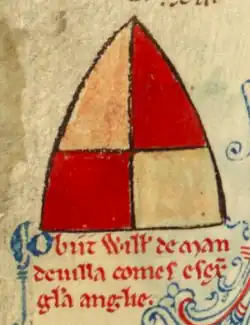 Obiit Will' de man
devilla comes esex̄
gl'a anglie.